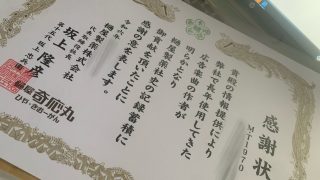 感謝状
MT1970
貴殿の情報提供により
弊社で長年使用してきた
広告楽曲の作者が
明らかとなり
樋屋製薬社史の記録蓄積に
御貢献を頂いたことに
感謝の意を表します。
令和六年
樋屋製薬株式会社
代表取締役社長
坂上隆彦
樋屋奇応丸
ひや・きおーがん